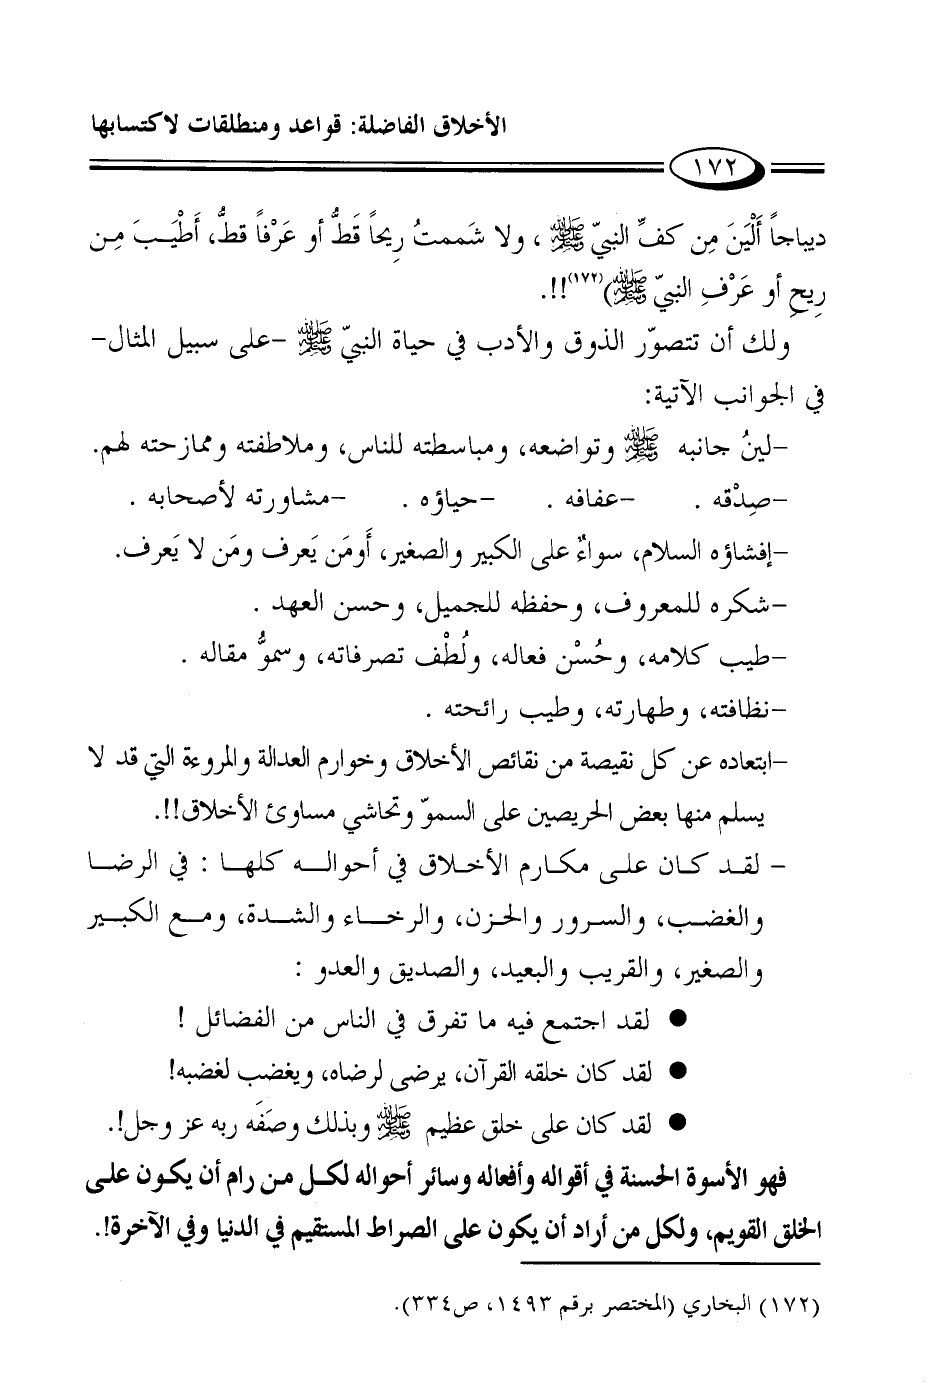 الأخلاق الفاضلة: قواعد ومنطلقات لاكتسابها
١٧٢
ديباجاً أَلْيَنَ مِن كفِّ النبيّ ﷺ ، ولا شَممتُ رِيحاً قَطُّ أو عَرْفاً قطُّ، أَطْيَبَ مِن
رِيحِ أو عَرْفِ النبيّ ﷺ)(١٧٢)!!.
ولك أن تتصوّر الذوق والأدب في حياة النبيّ ﷺ -على سبيل المثال-
في الجوانب الآتية:
-لينُ جانبه ﷺ وتواضعه، ومباسطته للناس، وملاطفته وممازحته لهم.
-صِدْقه . -عفافه . -حياؤه . -مشاورته لأصحابه .
-إفشاؤه السلام، سواءٌ على الكبير والصغير، أَومَن يَعرف ومَن لا يَعرف.
-شكره للمعروف، وحفظه للجميل، وحسن العهد .
-طيب كلامه، وحُسْن فعاله، ولُطْف تصرفاته، وسموُّ مقاله .
-نظافته، وطهارته، وطيب رائحته .
-ابتعاده عن كل نقيصة من نقائص الأخلاق وخوارم العدالة والمروءة التي قد لا
يسلم منها بعض الحريصين على السموّ وتحاشي مساوئ الأخلاق!!.
- لقد كان على مكارم الأخلاق في أحواله كلها : في الرضا
والغضب، والسرور والحزن، والرخاء والشدة، ومع الكبير
والصغير، والقريب والبعيد، والصديق والعدو :
● لقد اجتمع فيه ما تفرق في الناس من الفضائل !
● لقد كان خلقه القرآن، يرضى لرضاه، ويغضب لغضبه!
● لقد كان على خلق عظيم ﷺ وبذلك وصَفَه ربه عز وجل!.
فهو الأسوة الحسنة في أقواله وأفعاله وسائر أحواله لكل من رام أن يكون على
الخلق القويم، ولكل من أراد أن يكون على الصراط المستقيم في الدنيا وفي الآخرة!.
(١٧٢) البخاري (المختصر برقم ١٤٩٣، ص٣٣٤).